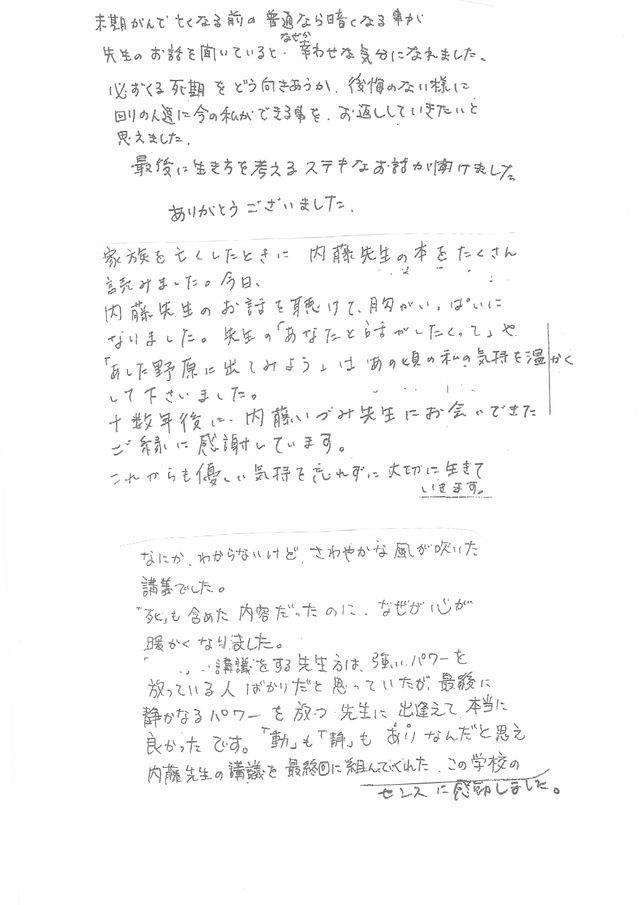 末期がんで亡くなる前の普通なら暗くなる事が
先生のお話を聞いていると、なぜか幸わせな気分になれました。
必ずくる死期をどう向きあうか、後悔のない様に
回りの人達に今の私ができる事を、お返ししていきたいと
思えました。
最後に生き方を考えるステキなお話が聞けました
ありがとうございました。
家族を亡くしたときに 内藤先生の本をたくさん
読みました。今日、
内藤先生のお話を聴けて、胸がいっぱいに
なりました。先生の「あなたと話がしたくって」や
「あした野原に出てみよう」は あの頃の私の気持を温かく
して下さいました。
十数年後に、内藤いづみ先生にお会いできた
ご縁に感謝しています。
これからも優しい気持を忘れずに 大切に生きて
いきます。
なにか、わからないけど、さわやかな風が吹いた
講義でした。
「死」も含めた内容だったのに、なぜか心が
暖かくなりました。
講義をする先生方は、強いパワーを
放っている人ばかりだと思っていたが、最後に
静かなるパワーを放つ先生に出逢えて、本当に
良かったです。「動」も「静」もありなんだと思え
内藤先生の講義を最終回に組んでくれた、この学校の
センスに感動しました。